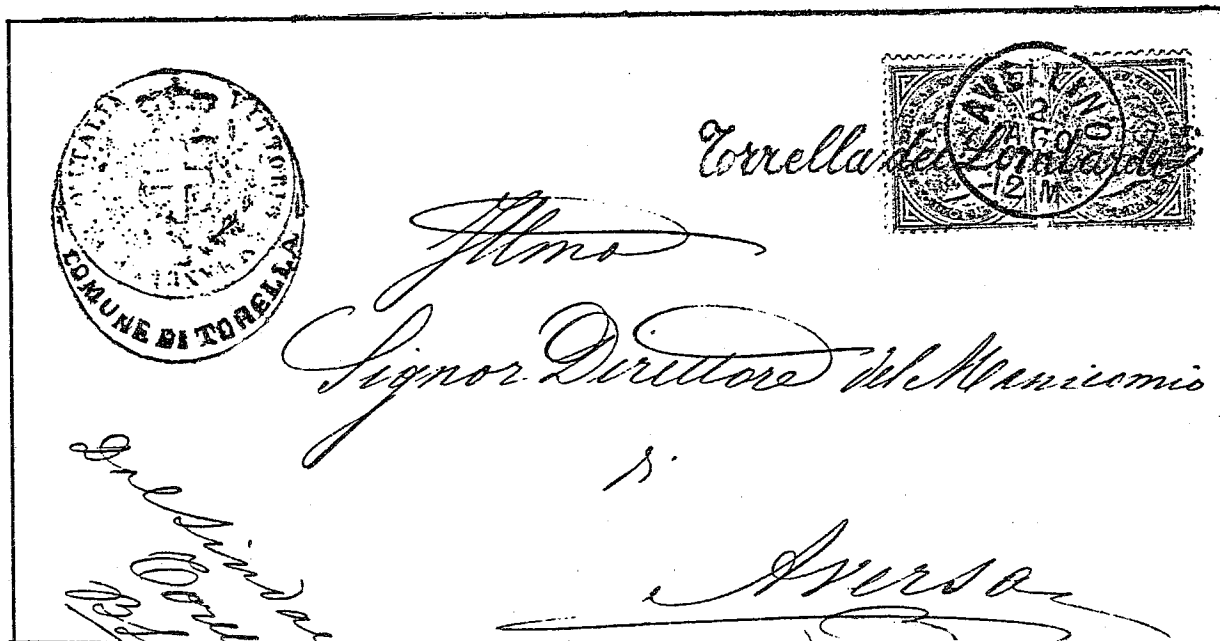 D'ITALIA VITTORIO
COMUNE DI TORELLA
AVELLINO
2
AGO
12 M
Torrella dei Lombardi
Illmo
Signor Direttore del Manicomio
di
Aversa
Del Sindac
Tore